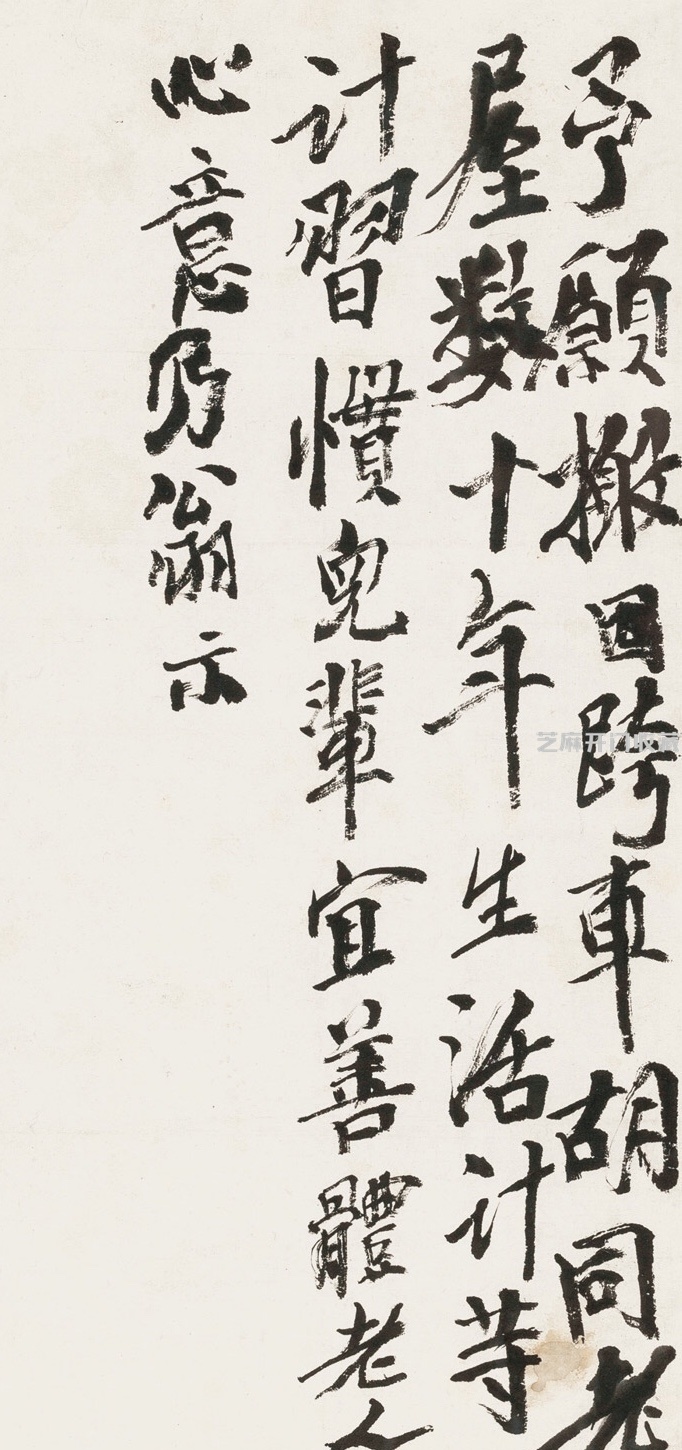 予願搬回跨車胡同老
屋數十年生活计等
计習慣兒輩宜善體老人
心意乃翁示
芝麻开门收藏